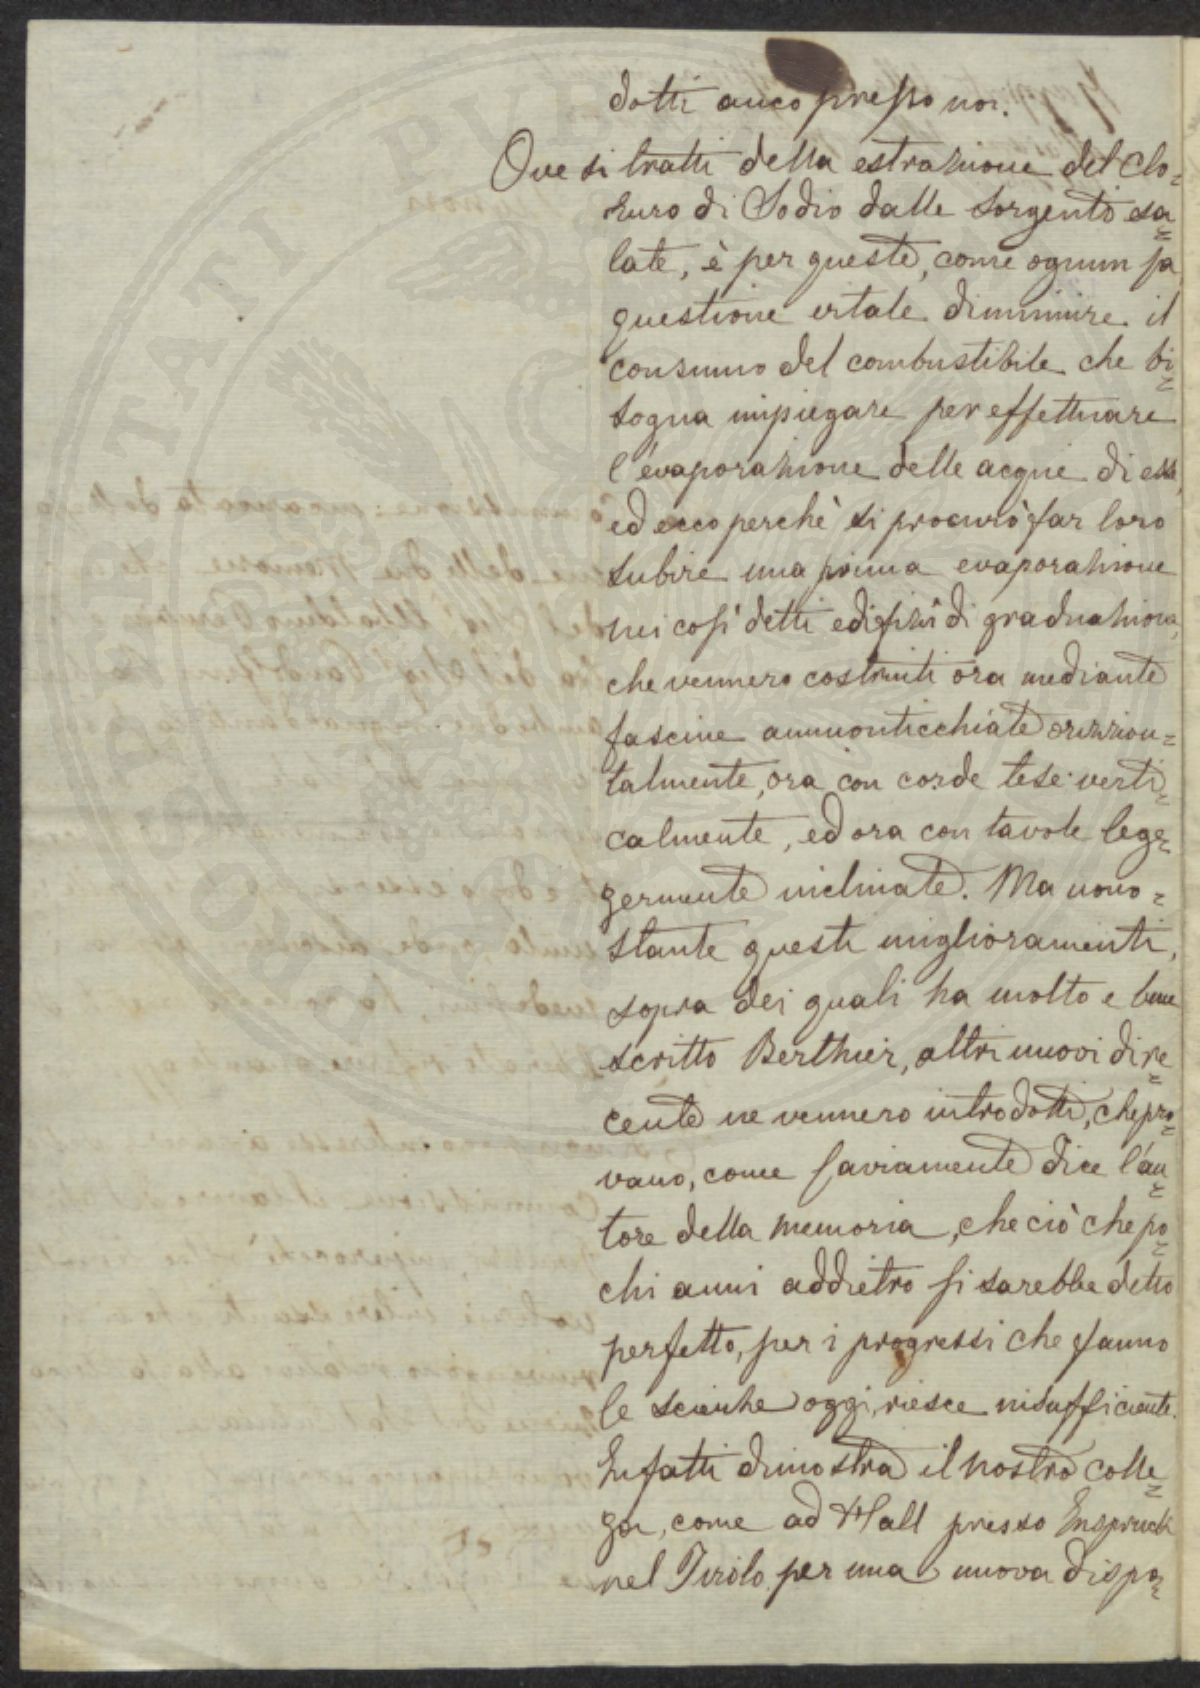 dotti anco presso noi.
Ove si tratti della estrazione del Clo=
ruro di Sodio dalle sorgenti sa=
late, è per queste, come ognun sa
questione vitale diminuire il
consumo del combustibile che bi=
sogna impiegare per effettuare
l'evaporazione delle acque di esse,
ed ecco perchè si procurò far loro
subire una prima evaporazione
nei così detti edifizii di graduazione,
che vennero costruiti ora mediante
fascine ammonticchiate orizzon=
talmente, ora con corde tese verti=
calmente, ed ora con tavole leg=
germente inclinate. Ma nono=
stante questi miglioramenti,
sopra dei quali ha molto e bene
scritto Berthier, altri nuovi di re=
cente ne vennero introdotti, che pro=
vano, come saviamente dice l'au=
tore della memoria, che ciò che po=
chi anni addietro si sarebbe detto
perfetto, per i progressi che fanno
le scienze oggi, riesce insufficiente.
Infatti dimostra il nostro colle=
ga, come ad Hall presso Enspruck
nel Tirolo per una nuova dispo=